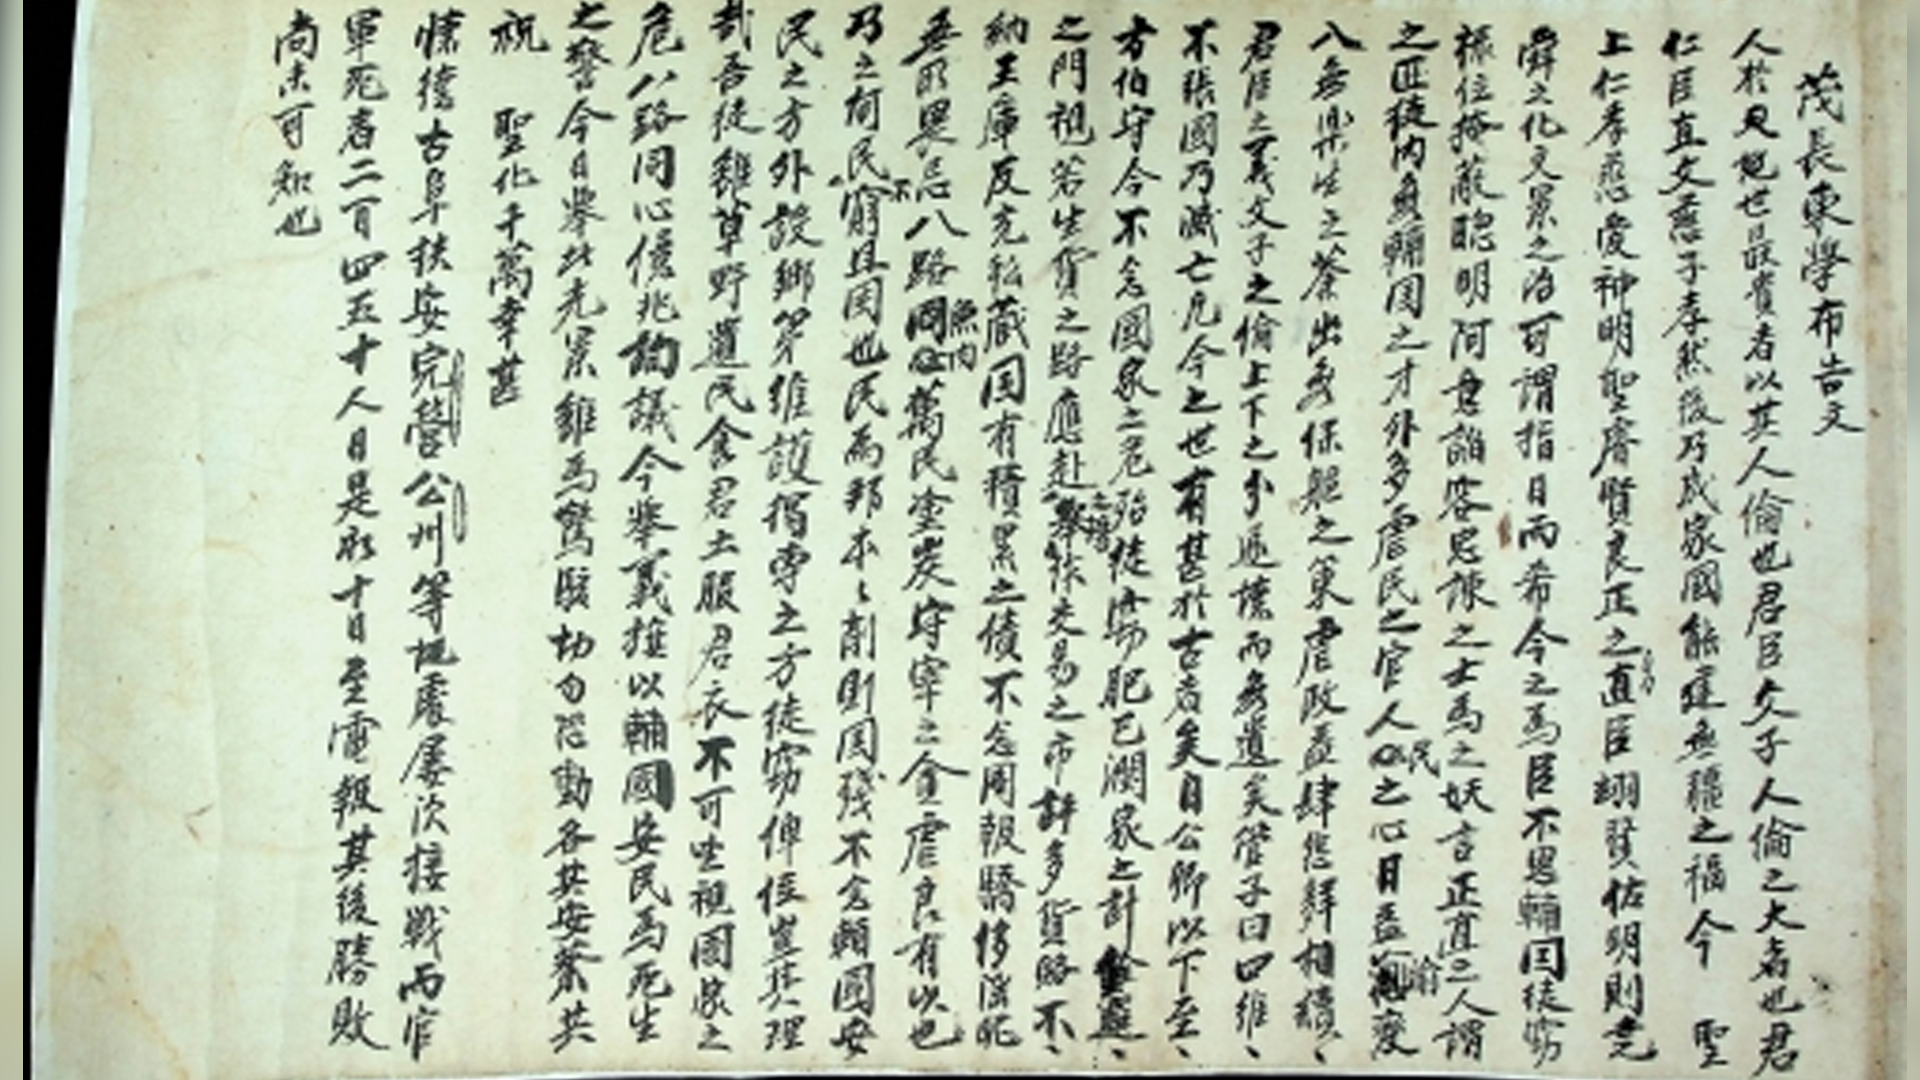 茂長東學布告文
人於又地世最貴者以其人倫也君臣父子人倫之大者也君
仁臣直父慈子孝然後乃成家國能逞無疆之福今 聖
上仁孝慈愛神明聖睿賢良正之直臣翊贊佑明則堯
舜之化文景之治可謂指日而希今之爲臣不思輔国徒窃
祿位掩蔽聰明阿意諂容忠諫之士爲之妖言正直之人謂
之匪徒内無輔国之才外多虐民之官人民之心日益渝變
入無樂生之業出無保軀之策虐政益肆怨聲相續
君臣之義父子之倫上下之分遂壞而無遺矣管子曰四維
不張國乃滅亡凡今之世有甚於古者矣自公卿以下至
方伯守令不念國家之危殆徒窃肥己潤家之計銓選
之門視若生貨之路應赴之場擧作交易之市許多貨賂不
納王庫反充私藏国有積累之債不念圖報驕侈淫昵
無所畏忌八路魚肉萬民塗炭守宰之貪虐良有以也
乃之何民不窮且困也民爲邦本〻削則国殘不念輔國安
民之方外設鄕第維護獨專之方徒窃俸位豈其理
哉吾徒雖草野遺民食君土服君衣不可坐視國家之
危八路同心億兆詢議今擧義擡以輔國安民爲死生
之誓今日擧此光景雖爲驚駭切勿恐動各其安業共
祝 聖化千萬幸甚
愫德古阜扶安完營公州等地處屢次接戰而官
軍死者二百四五十人日是於十日至電報其後勝敗
尚未可知也